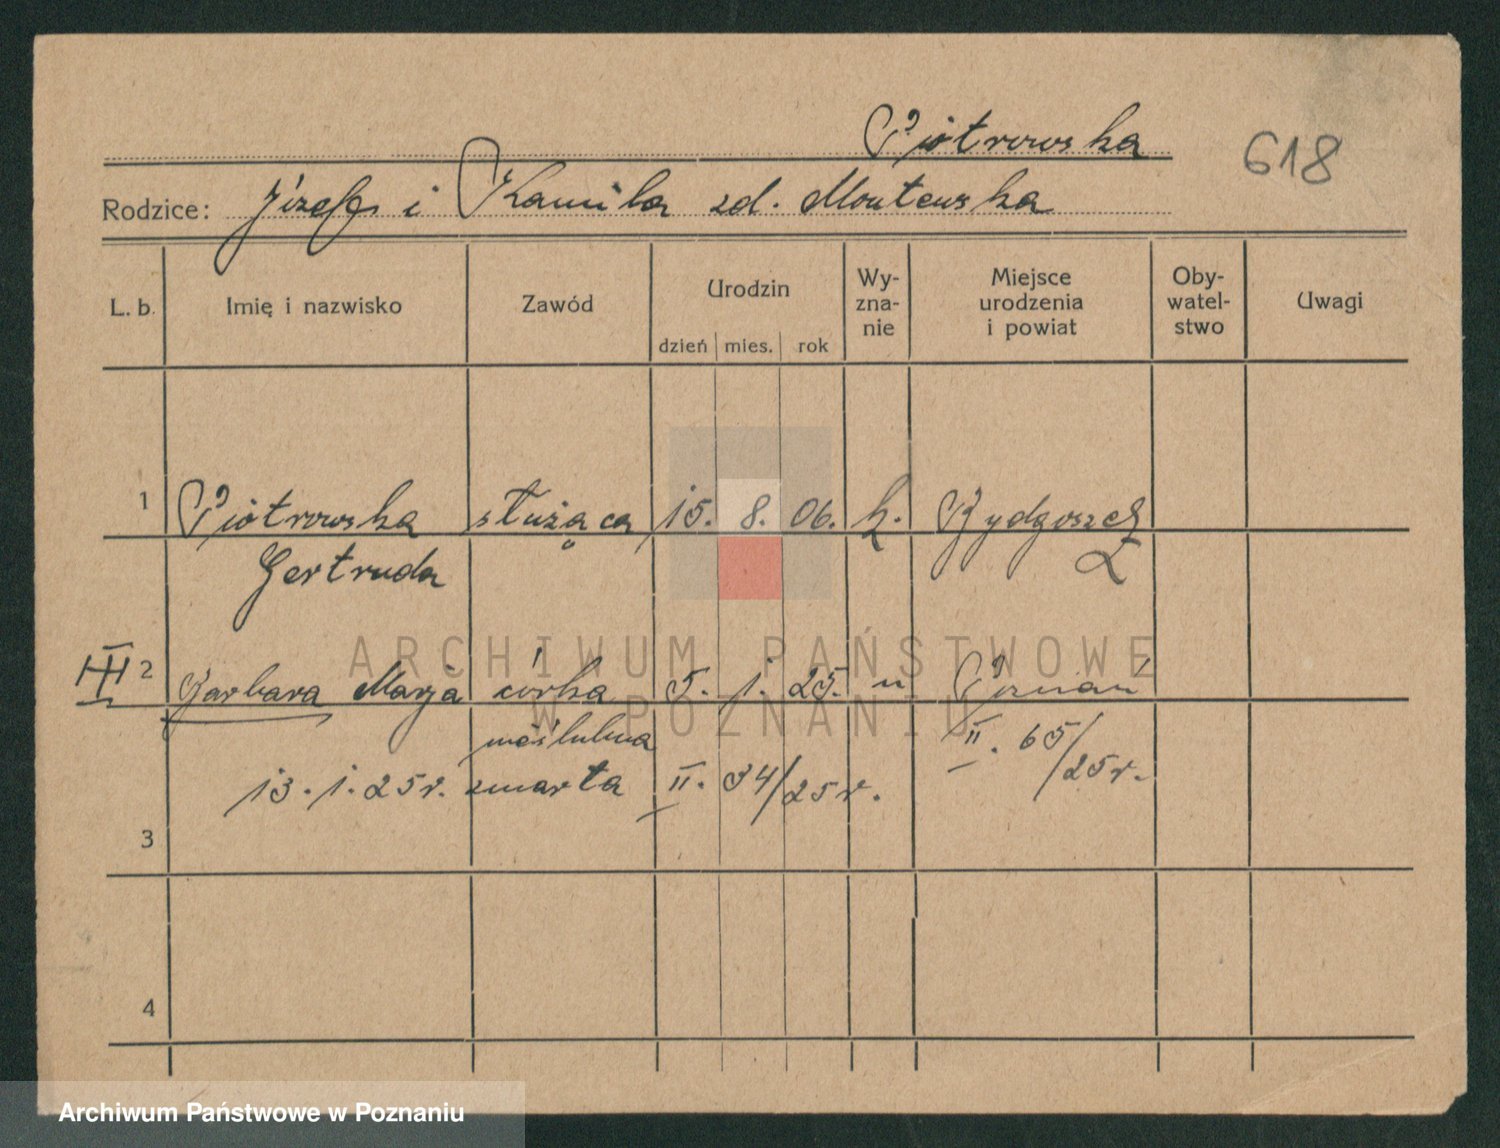 Piotrowska
618
Rodzice: Józef i Kamila zd. Montewska
L. b. Imię i nazwisko Zawód Urodzin dzień mies. rok Wy-zna-nie Miejsce urodzenia i powiat Oby-watel-stwo Uwagi
1 Piotrowska służąca 15. 8. 06. k. Bydgoszcz
Gertruda
III 2 Barbara Marja córka 5. 1. 25. " Poznań
nieślubna II. 65/25r.
13. 1. 25r. zmarła II. 34/25r.
3
4
ARCHIWUM PAŃSTWOWE
W POZNANIU
Archiwum Państwowe w Poznaniu